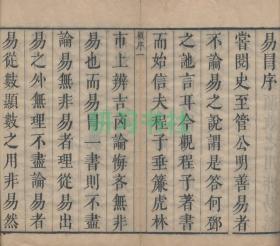 易目序
嘗閱史至管公明善易者
不論易之說謂是答何鄧
之訑言耳今觀程子著書
而始信夫程子垂簾虎林
序一
市上辨吉凶論悔吝無非
易也而易目一書則不盡
論易無非易者理從易出
易之外無理不盡論易者
易從數顯數之用非易然